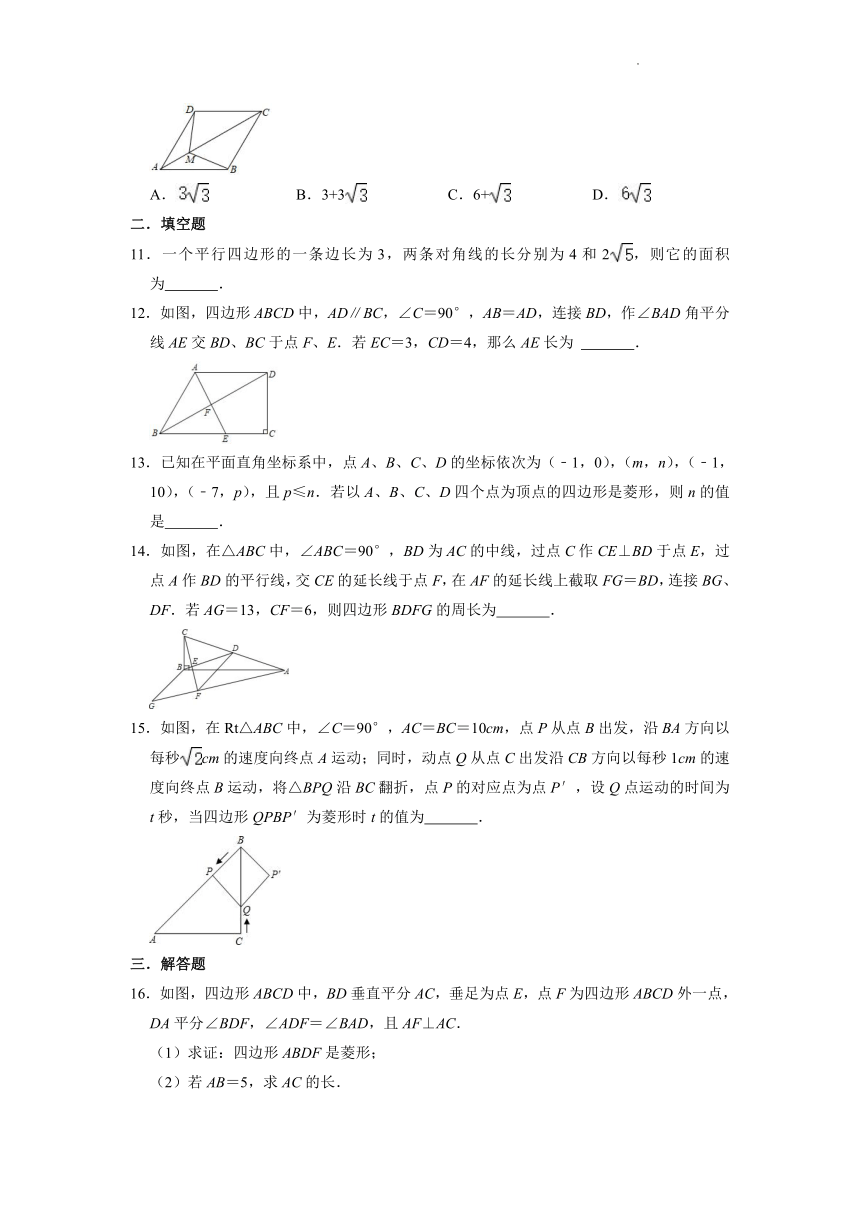 D C
A M B
A.3√3 B.3+3√3 C.6+√3 D.6√3
二.填空题
11.一个平行四边形的一条边长为 3,两条对角线的长分别为 4 和 2√5,则它的面积
为 .
12.如图,四边形 ABCD 中,AD∥BC,∠C=90°,AB=AD,连接 BD,作∠BAD 角平分
线 AE 交 BD、BC 于点 F、E.若 EC=3,CD=4,那么 AE 长为 .
A D
F
B E C
13.已知在平面直角坐标系中,点 A、B、C、D 的坐标依次为(﹣1,0),(m,n),(﹣1,
10),(﹣7,p),且 p≤n.若以 A、B、C、D 四个点为顶点的四边形是菱形,则 n 的值
是 .
14.如图,在△ABC 中,∠ABC=90°,BD 为 AC 的中线,过点 C 作 CE⊥BD 于点 E,过
点 A 作 BD 的平行线,交 CE 的延长线于点 F,在 AF 的延长线上截取 FG=BD,连接 BG、
DF.若 AG=13,CF=6,则四边形 BDFG 的周长为 .
C
D
B E A
F
G
15.如图,在 Rt△ABC 中,∠C=90°,AC=BC=10cm,点 P 从点 B 出发,沿 BA 方向以
每秒√2cm 的速度向终点 A 运动;同时,动点 Q 从点 C 出发沿 CB 方向以每秒 1cm 的速
度向终点 B 运动,将△BPQ 沿 BC 翻折,点 P 的对应点为点 P′,设 Q 点运动的时间为
t 秒,当四边形 QPBP′为菱形时 t 的值为 .
B
P P'
Q
A C
三.解答题
16.如图,四边形 ABCD 中,BD 垂直平分 AC,垂足为点 E,点 F 为四边形 ABCD 外一点,
DA 平分∠BDF,∠ADF=∠BAD,且 AF⊥AC.
(1)求证:四边形 ABDF 是菱形;
(2)若 AB=5,求 AC 的长.